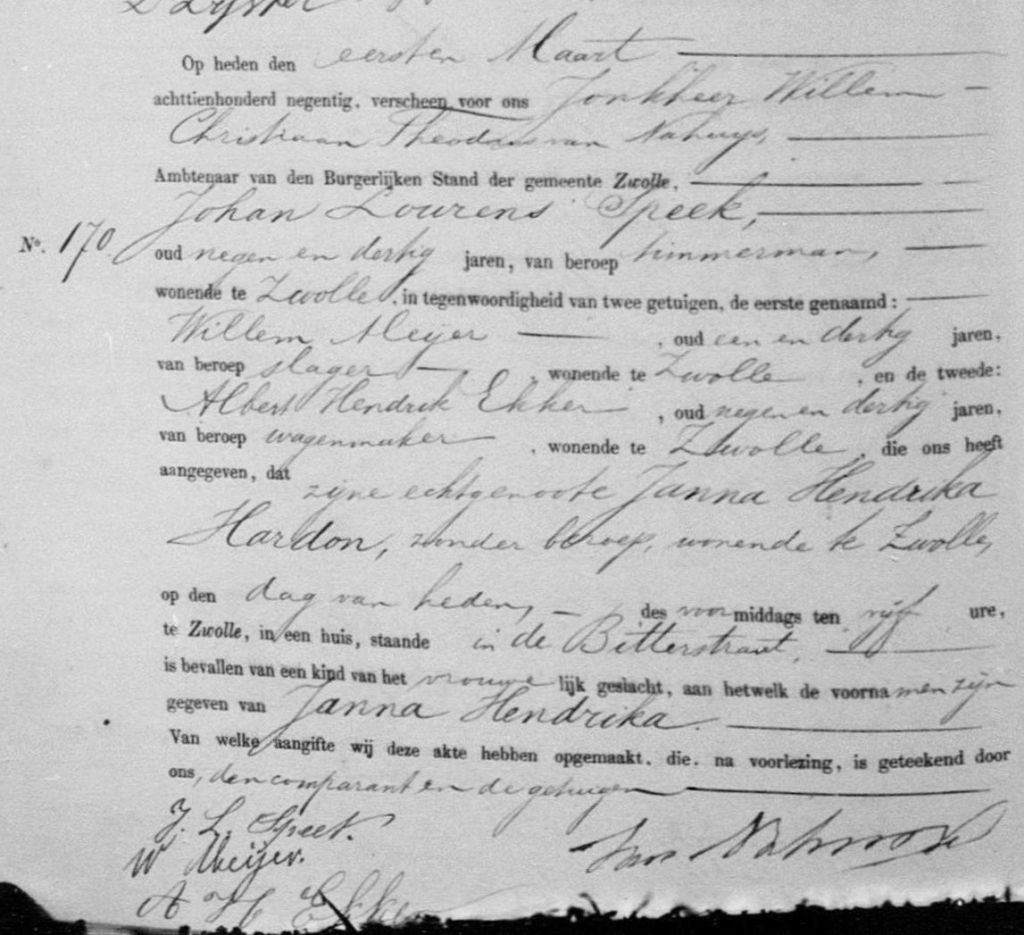 Op heden den eersten Maart
achttienhonderd negentig, verscheen voor ons Jonkheer Willem
Christiaan Theodoor van Nahuys,
Ambtenaar van den Burgerlijken Stand der gemeente Zwolle,
Johan Lourens Speek,
No. 170.
oud negen en dertig jaren, van beroep timmerman,
wonende te Zwolle, in tegenwoordigheid van twee getuigen, de eerste genaamd:
Willem Meijer, oud een en dertig jaren,
van beroep slager, wonende te Zwolle, en de tweede:
Albert Hendrik Ekker, oud negen en dertig jaren,
van beroep wagenmaker, wonende te Zwolle, die ons heeft
aangegeven, dat zijne echtgenoote Janna Hendrika
Hardon, zonder beroep, wonende te Zwolle,
op den dag van heden, des voormiddags ten vijf ure,
te Zwolle, in een huis, staande in de Bitterstraat,
is bevallen van een kind van het vrouwelijk geslacht, aan hetwelk de voornamen zijn
gegeven van Janna Hendrika.
Van welke aangifte wij deze akte hebben opgemaakt, die, na voorlezing, is geteekend door
ons, den comparant en de getuigen
J. L. Speek.
W Meijer.
A H Ekker